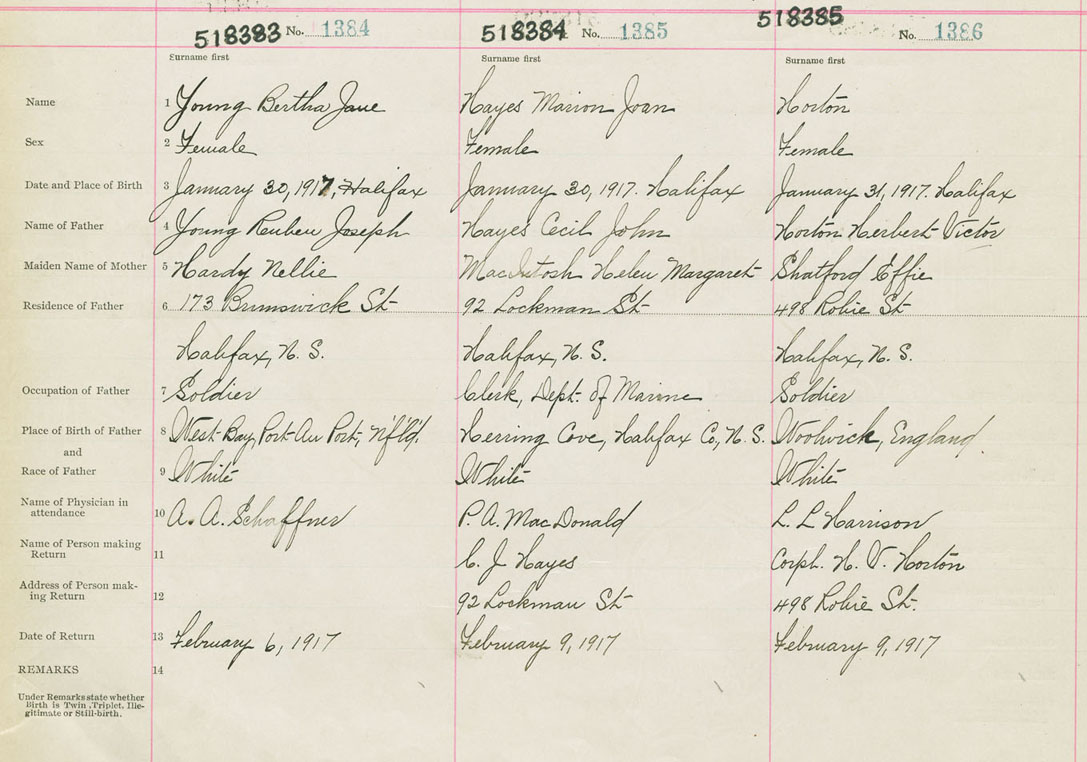 518383 No. 1384 518384 No. 1385 518385 No. 1386
Surname first Surname first Surname first
Name 1 Young Bertha Jane Hayes Marion Joan Horton
Sex 2 Female Female Female
Date and Place of Birth 3 January 30, 1917, Halifax January 30, 1917. Halifax January 31, 1917. Halifax
Name of Father 4 Young Reuben Joseph Hayes Cecil John Horton Herbert Victor
Maiden Name of Mother 5 Hardy Nellie MacIntosh Helen Margaret Shatford Effie
Residence of Father 6 173 Brunswick St 92 Lockman St 498 Robie St
Halifax, N. S. Halifax, N. S. Halifax, N. S.
Occupation of Father 7 Soldier Clerk, Dept. of Marine Soldier
Place of Birth of Father 8 West Bay, Port Au Port, Nf'l'd, Herring Cove, Halifax Co, N. S. Woolwich, England.
and
Race of Father 9 White White White
Name of Physician in
attendance 10 A. A. Schaffner P. A. MacDonald L. L Harrison
Name of Person making
Return 11 C. J. Hayes Corpl. H. V. Horton
Address of Person mak-
ing Return 12 92 Lockman St 498 Robie St.
Date of Return 13 February 6, 1917 February 9, 1917 February 9, 1917
REMARKS 14
Under Remarks state whether
Birth is Twin, Triplet, Ille-
gitimate or Still-birth.